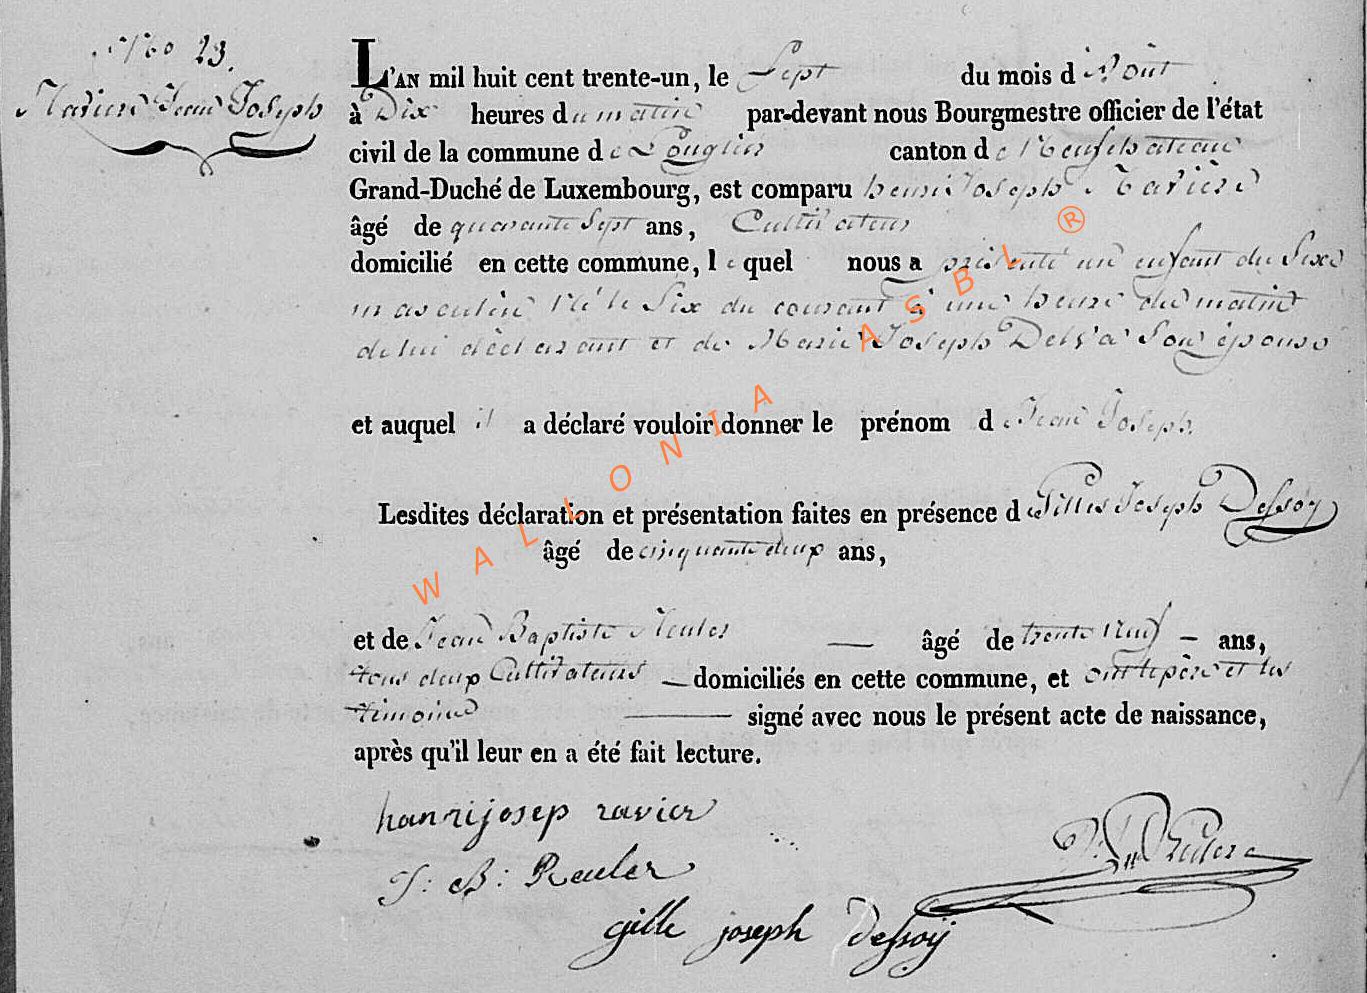 No 23.
Ravier Jean Joseph
L'AN mil huit cent trente-un, le Sept du mois d'Août
à Dix heures du matin par-devant nous Bourgmestre officier de l'état
civil de la commune de Longlier canton de Neufchateau
Grand-Duché de Luxembourg, est comparu henri Joseph Ravier
âgé de quarante Sept ans, Cultivateur
domicilié en cette commune, lequel nous a présenté un enfant du Sexe
masculin Né le Six du courant à une heure du matin
de lui déclarant et de Marie Joseph Son épouse
et auquel il a déclaré vouloir donner le prénom de Jean Joseph
Lesdites déclaration et présentation faites en présence de Gilles Joseph Dessoy
âgé de cinquante deux ans,
et de Jean Baptiste Reuler — âgé de trente Neuf — ans,
tous deux Cultivateurs — domiciliés en cette commune, et ont le père et les
témoins — signé avec nous le présent acte de naissance,
après qu'il leur en a été fait lecture.
hanrijosep ravier
J: B: Reuler
gille joseph Dessoij
WALLONIA ASBL ®